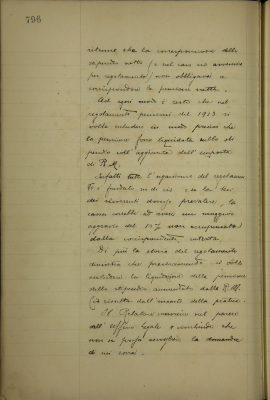 796
ritenne che la corresponsione dello
stipendio netto (e nel caso non avvenisse
per regolamento) non obbligava a
corrispondere la pensione netta.
Ad ogni modo è certo che nel
regolamento pensioni del 1913 si
volle includere in modo preciso che
la pensione fosse liquidata sullo sti-
pendio coll'aggiunta dell'imposta
di R. M.
Infatti tutto l'organismo del reclamo
si è fondato su di ciò e se la tesi
dei ricorrenti dovesse prevalere, la
cassa verrebbe ad avere un maggiore
aggravio del 10% non compensato
dalla corrispondente entrata.
Di poi la storia del regolamento
dimostra che precisamente si volle
escludere la liquidazione della pensione
dello stipendio aumentato della R. M.
Ciò risulta dall'insieme della pratica.
Il Relatore conviene nel parere
dell'Ufficio legale e conclude che
non si possa accogliere la domanda
di cui sopra.